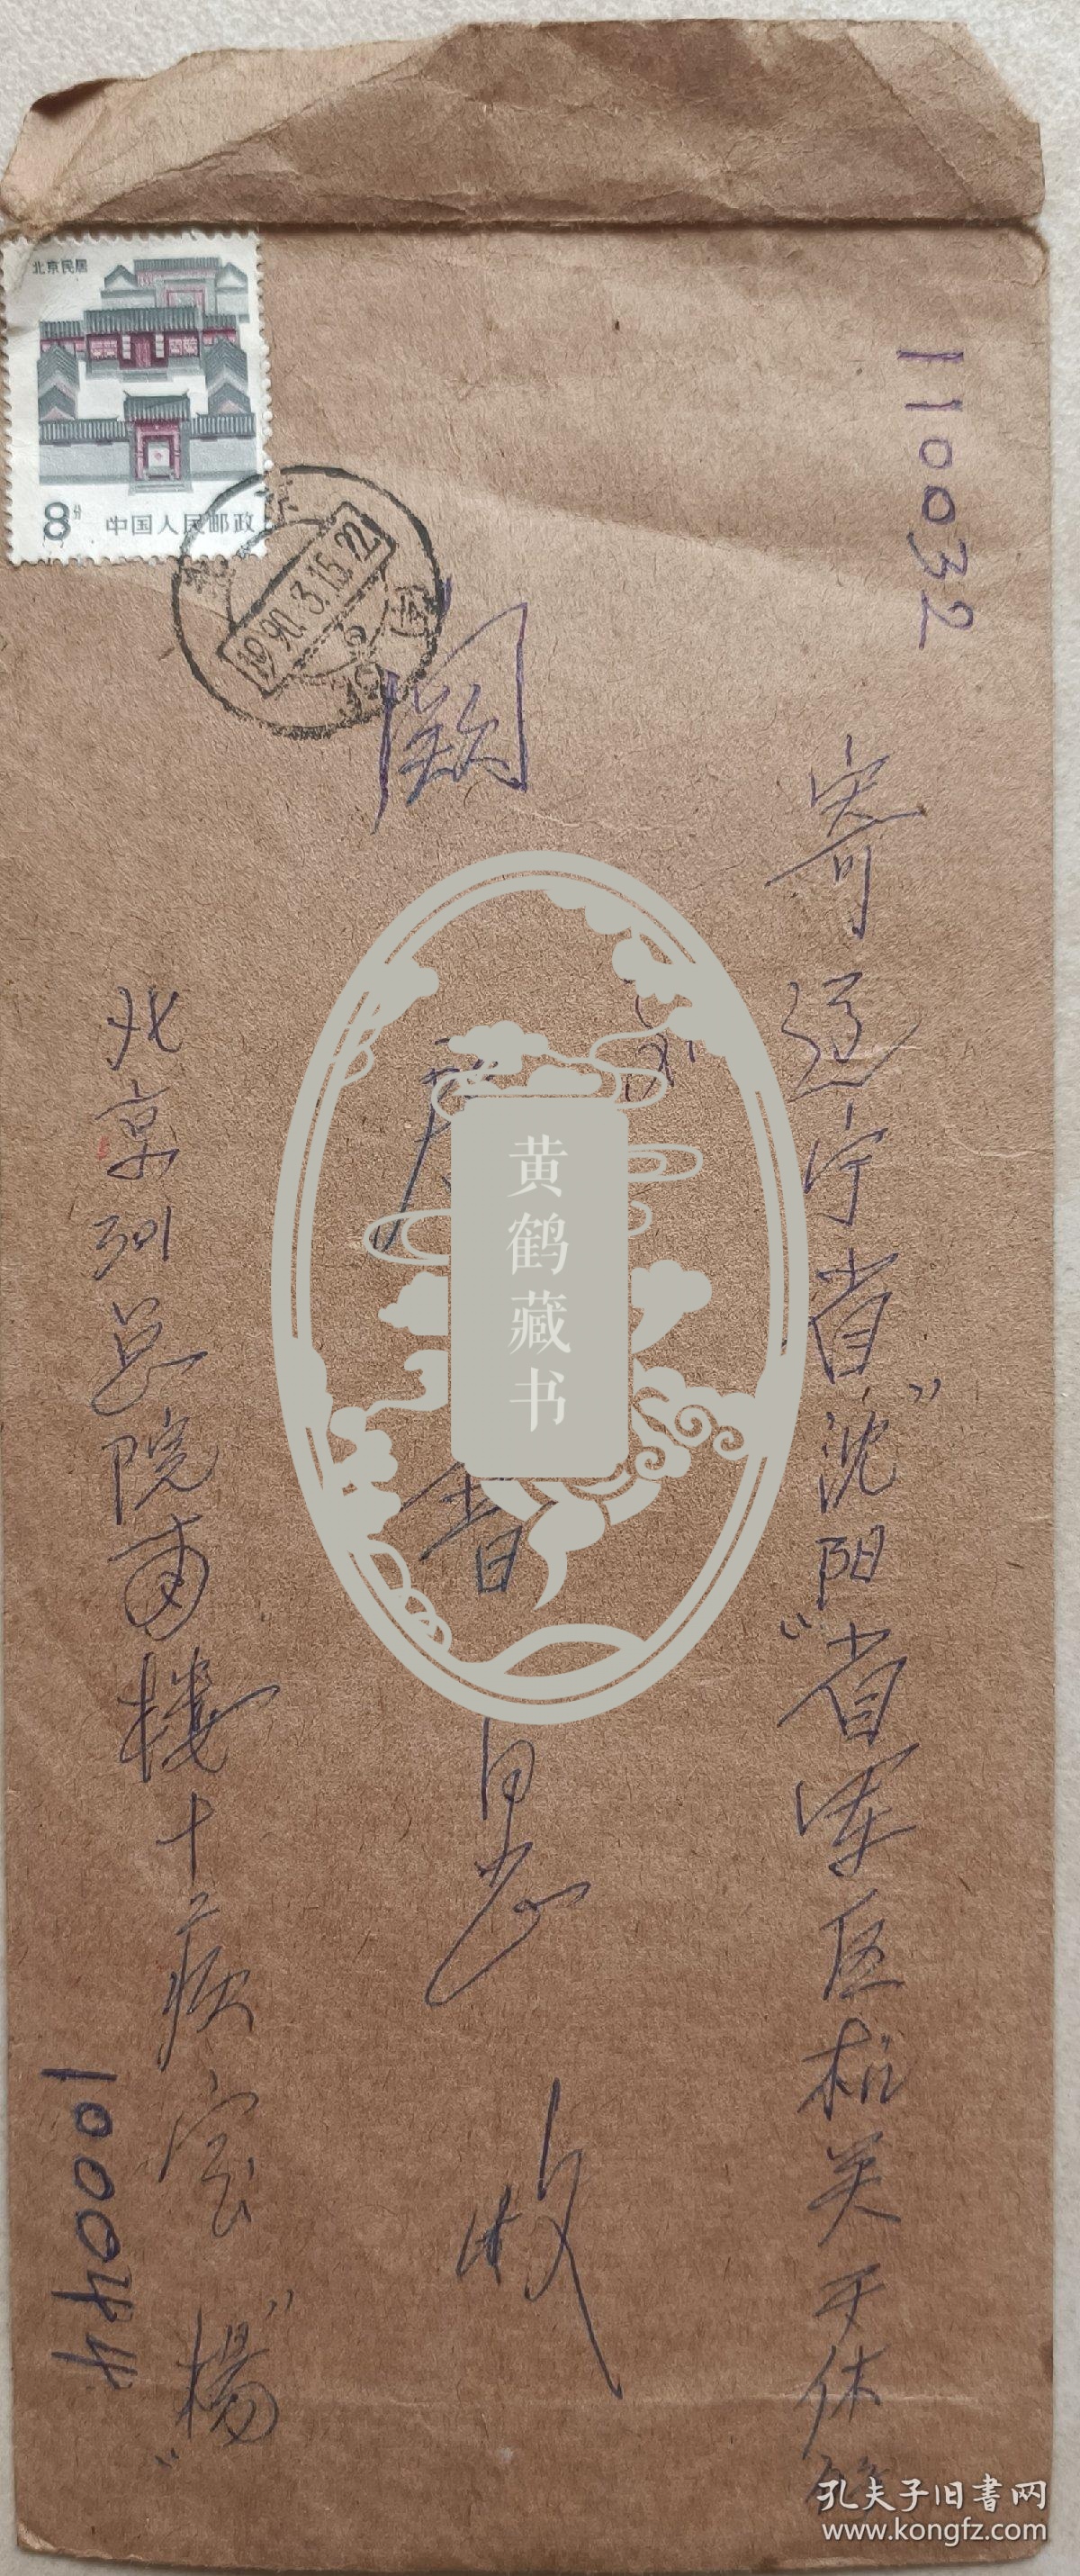 北京民居
8分 中国人民邮政
1990.3.15.22
110032
寄辽宁省"沈阳"省军区机关干休
阙
青
同志
收
北京301总院南楼十病室"杨"
100044
黄鹤藏书
孔夫子旧书网
www.kongfz.com